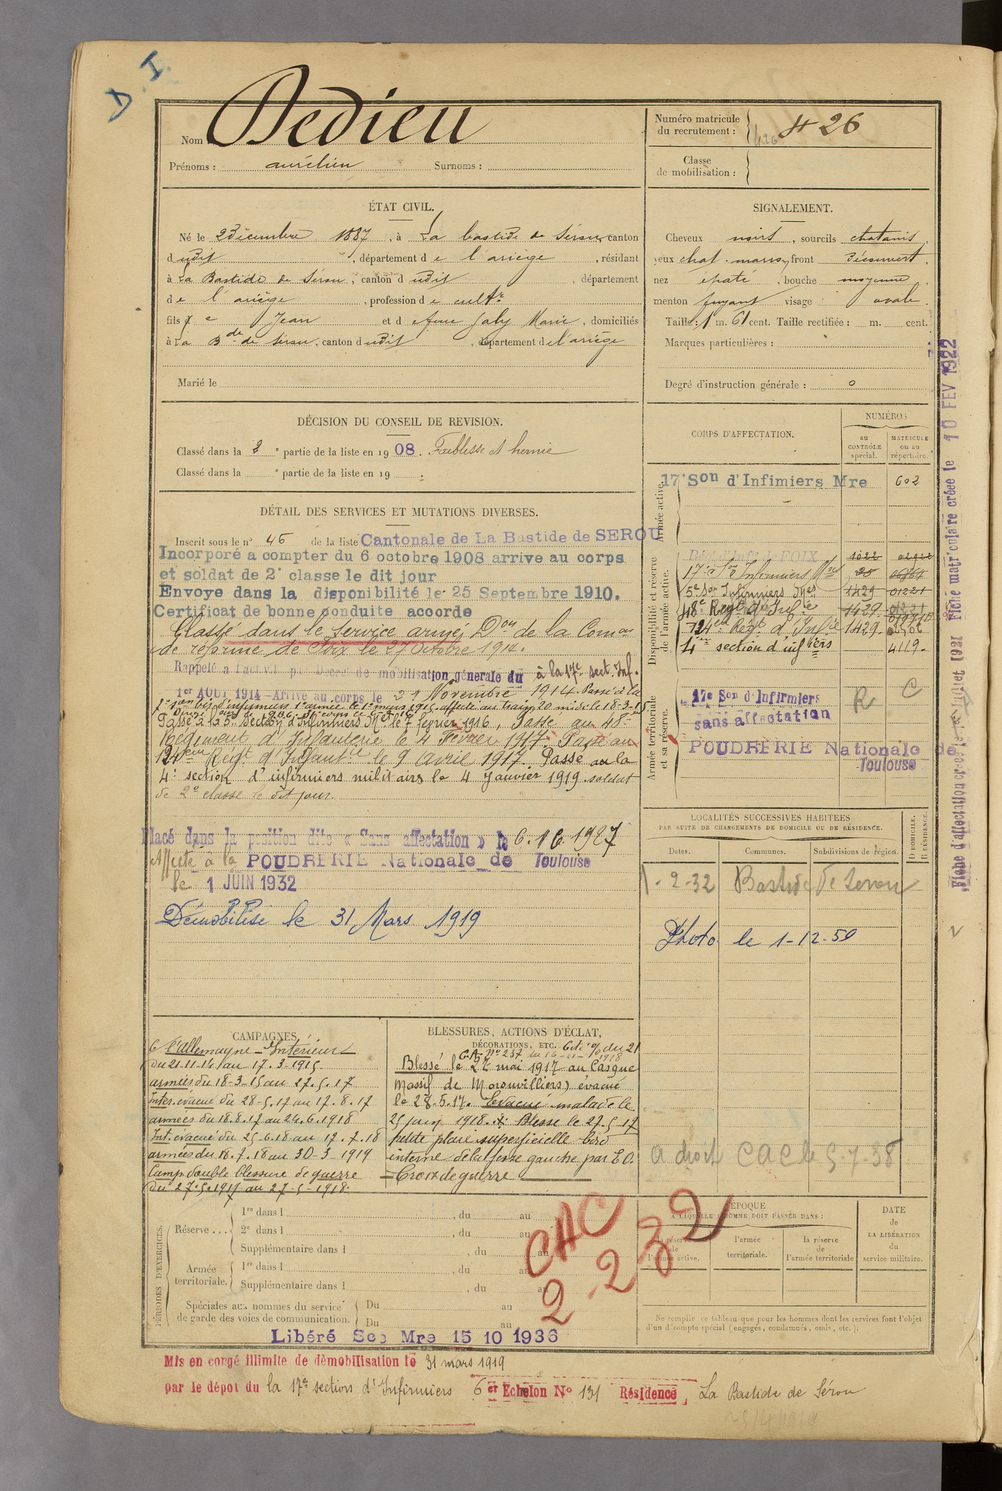 D. I.
Nom : Dedieu
Prénoms : aurélien Surnoms :
Numéro matricule du recrutement : 426
Classe de mobilisation :
ÉTAT CIVIL.
Né le 2 Décembre 1887, à La bastide de Sérou, canton
dudit, département de l'ariège, résidant
à La Bastide de Sérou, canton dudit, département
de l'ariège, profession de cultr
fils de Jean et d Marie, domiciliés
à La Bde de Sérou, canton dudit, département de l'ariège
Marié le
SIGNALEMENT.
Cheveux noirs, sourcils chatains
yeux chat. marrs, front découvert
nez épaté, bouche moyenne
menton fuyant visage ovale
Taille : 1 m. 61 cent. Taille rectifiée : m. cent.
Marques particulières :
Degré d'instruction générale : 0
DÉCISION DU CONSEIL DE REVISION.
Classé dans la 2e partie de la liste en 1908. Faiblesse et hernie
Classé dans la e partie de la liste en 19
CORPS D'AFFECTATION.
NUMÉROS
au CONTRÔLE spécial.
MATRICULE ou au répertoire.
Armée active.
17e Son d'Infirmiers Mre 602
Disponibilité et réserve de l'armée active.
Régt d'Infie de FOIX 1022
17e Son Infirmiers Mres
5e Son Infirmiers Mres 1429 01221
48e Régt d'Infie 1429
124e Régt d'Infie 1429
4e section d'infirs 4119.
Armée territoriale et sa réserve.
17e Son d'Infirmiers R C
sans affectation
POUDRERIE Nationale de Toulouse
DÉTAIL DES SERVICES ET MUTATIONS DIVERSES.
Inscrit sous le n° 45 de la liste Cantonale de La Bastide de SEROU
Incorporé a compter du 6 octobre 1908 arrive au corps
et soldat de 2e classe le dit jour
Envoye dans la disponibilité le 25 Septembre 1910.
Certificat de bonne conduite accorde
Classé dans le service armé, Don de la Comon
de réforme de Foix le 27 Octobre 1914.
Rappelé a l'activité par Décret de mobilisation générale du à la 17e sect. Inf.
1er AOUT 1914 - Arrivé au corps le 21 Novembre 1914. Passé à la
Passé à la 5e Section d'Infirmiers Mres le 7 février 1916. Passé au 48e
Régiment d'Infanterie le 4 Février 1917. Passé au
124eme Régt d'Infantie le 9 Avril 1917. Passé à la
4e section d'infirmiers militaires le 4 Janvier 1919 soldat
de 2e classe le dit jour.
Placé dans la position dite « Sans affectation » le 6.12.1927
Affecté à la POUDRERIE Nationale de Toulouse
le 1 JUIN 1932
Démobilisé le 31 Mars 1919
LOCALITÉS SUCCESSIVES HABITÉES
PAR SUITE DE CHANGEMENTS DE DOMICILE OU DE RÉSIDENCE.
Dates. Communes. Subdivisions de région. D DOMICILE. R RÉSIDENCE.
1-2-32 Bastide de Serou
Photo le 1-12-50
a droit CAC le 5-7-38
CAMPAGNES
C. l'allemagne - Intérieur
du 21-11-14 au 17-3-1915
armées du 18-3-15 au 27.5.17
Inter. évacué du 28-5.17 au 17.8.17
armées du 18.8.17 au 24.6.1918
Int. évacué du 25-6.18 au 17.7.18
armées du 18.7.18 au 30-3-1919
Camp. double blessure de guerre
du 27.5.1917 au 27-5-1918.
BLESSURES, ACTIONS D'ÉCLAT,
DÉCORATIONS, ETC.
Blessé le 27 mai 1917 au Casque
massif de Moronvilliers, évacué
le 28.5.17. Evacué malade le
25 juin 1918. Blessé le 27.5.17
petite plaie superficielle bord
interne de la fesse gauche par E.O.
= Croix de guerre
PÉRIODES D'EXERCICES.
Réserve...
1re dans l , du au
2e dans l , du au
Supplémentaire dans l , du au
Armée territoriale.
1re dans l , du au
Supplémentaire dans l , du au
Spéciales aux hommes du service de garde des voies de communication.
Du au
Du au
CAC
2-2-32
ÉPOQUE
A LAQUELLE L'HOMME DOIT PASSER DANS :
la réserve de l'armée active.
l'armée territoriale.
la réserve de l'armée territoriale
DATE de LA LIBÉRATION du service militaire.
Ne remplir ce tableau que pour les hommes dont les services font l'objet
d'un décompte spécial (engagés, condamnés, omis, etc.).
Libéré Sce Mre 15 10 1936
Mis en congé illimité de démobilisation le 31 mars 1919
par le dépot du la 17e section d'Infirmiers 6e Echelon N° 131 Résidence La Bastide de Sérou
Fiche matriculaire créée le 10 FEV 1922